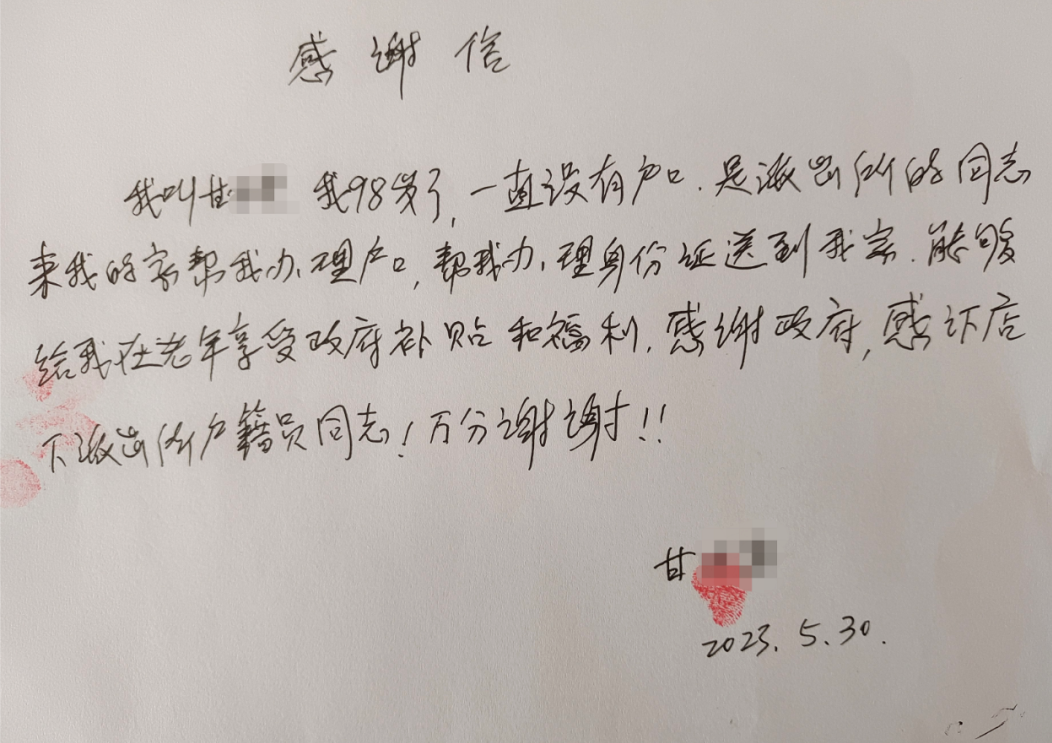 感谢信
我叫甘 我98岁了,一直没有户口.是派出所的同志
来我的家帮我办理户口,帮我办理身份证送到我家.能够
给我在老年享受政府补贴和福利.感谢政府,感谢店
下派出所户籍员同志!万分谢谢!!
甘
2023.5.30.